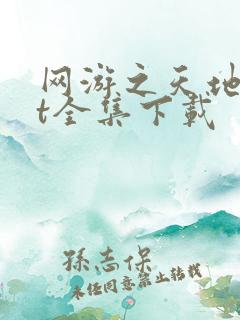 网游之天地
t全集下载
孫志保
未经同意禁止转载